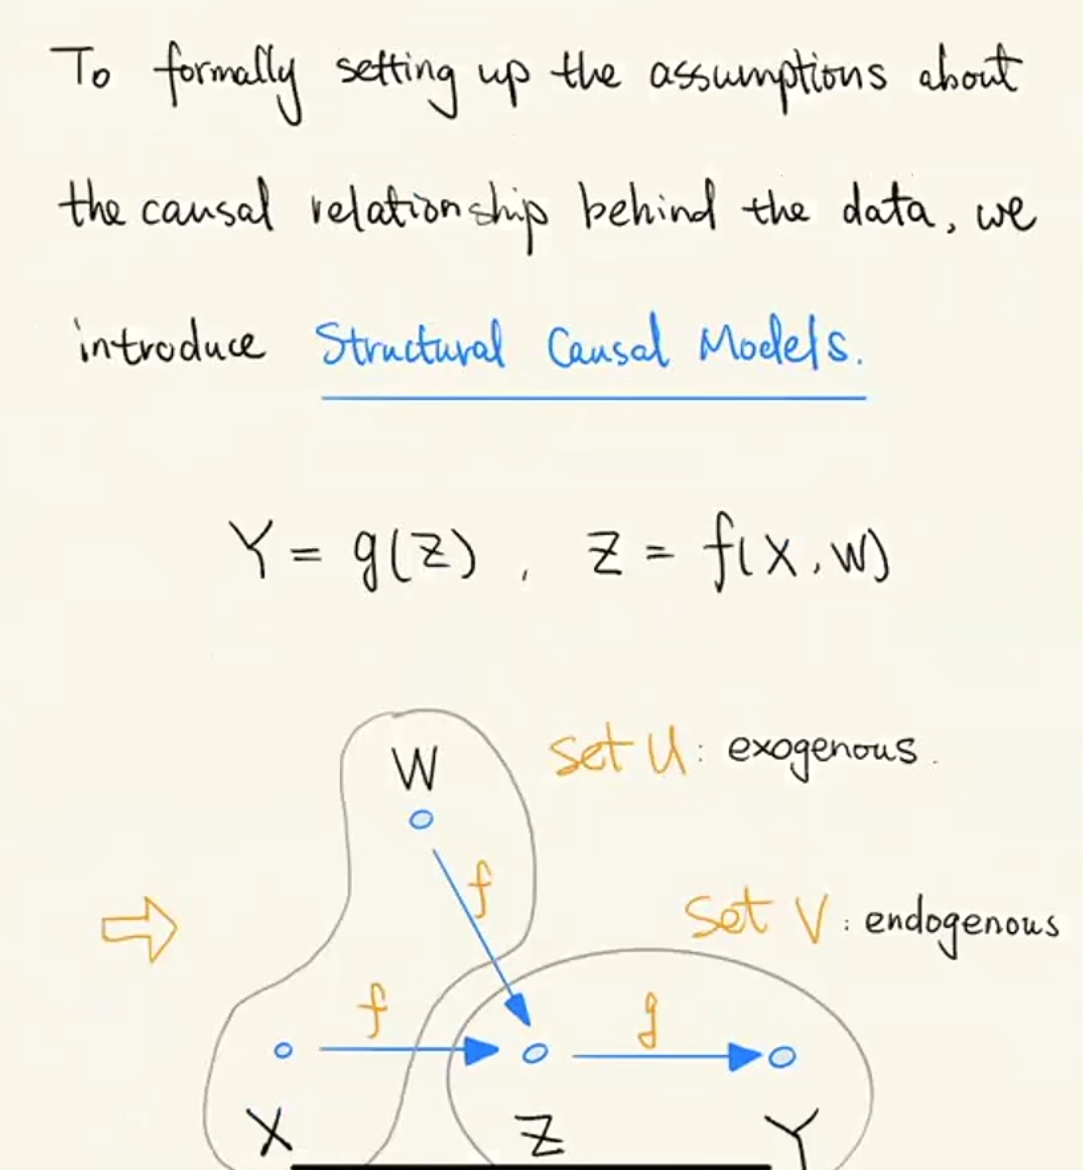 To formally setting up the assumptions about
the causal relationship behind the data, we
introduce Structural Causal Models.
Y = g(Z), Z = f(X, W)
W
set U: exogenous.
f
Set V: endogenous
f
g
X Z Y